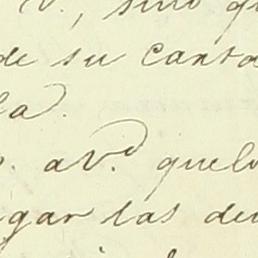 V., sino q
de su carta
la.
. a V.d quel
gar las de